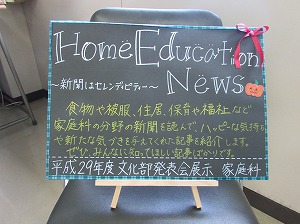 Home Education
News
～新聞はセレンディピティー～
食物や被服、住居、保育や福祉など
家庭科の分野の新聞を読んで、ハッピーな気持ち
や新たな気づきを与えてくれた記事を紹介します。
ぜひ、みんなに知ってほしい記事ばかりです。
平成29年度文化部発表会展示 家庭科